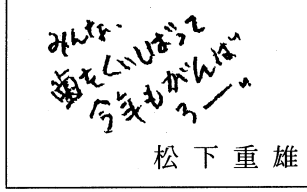 みんな、
歯をくいしばって
今年もがんば
ろー!!
松下重雄